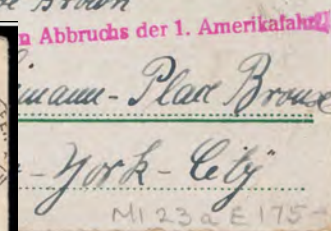 n Abbruchs der 1. Amerikafahrt
mann-Place Bronx
-York-City
MI 23a E 175-